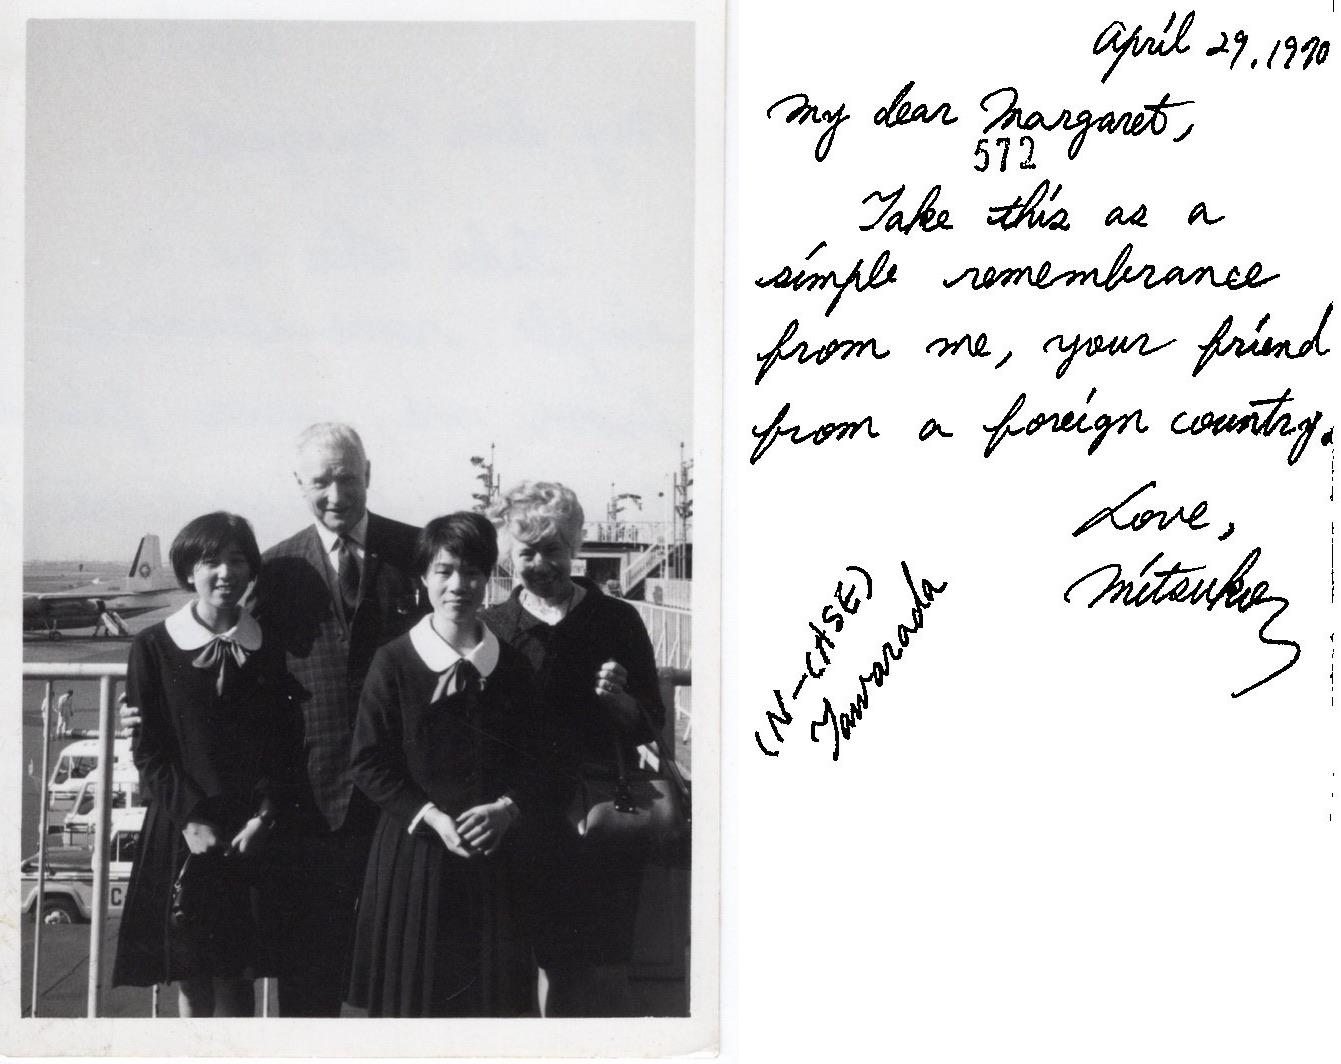 April 29, 1970
My dear Margaret,
572
Take this as a
simple remembrance
from me, your friend
from a foreign country.
Love,
Mitsuko
(N-CASE)
Tawarada
C